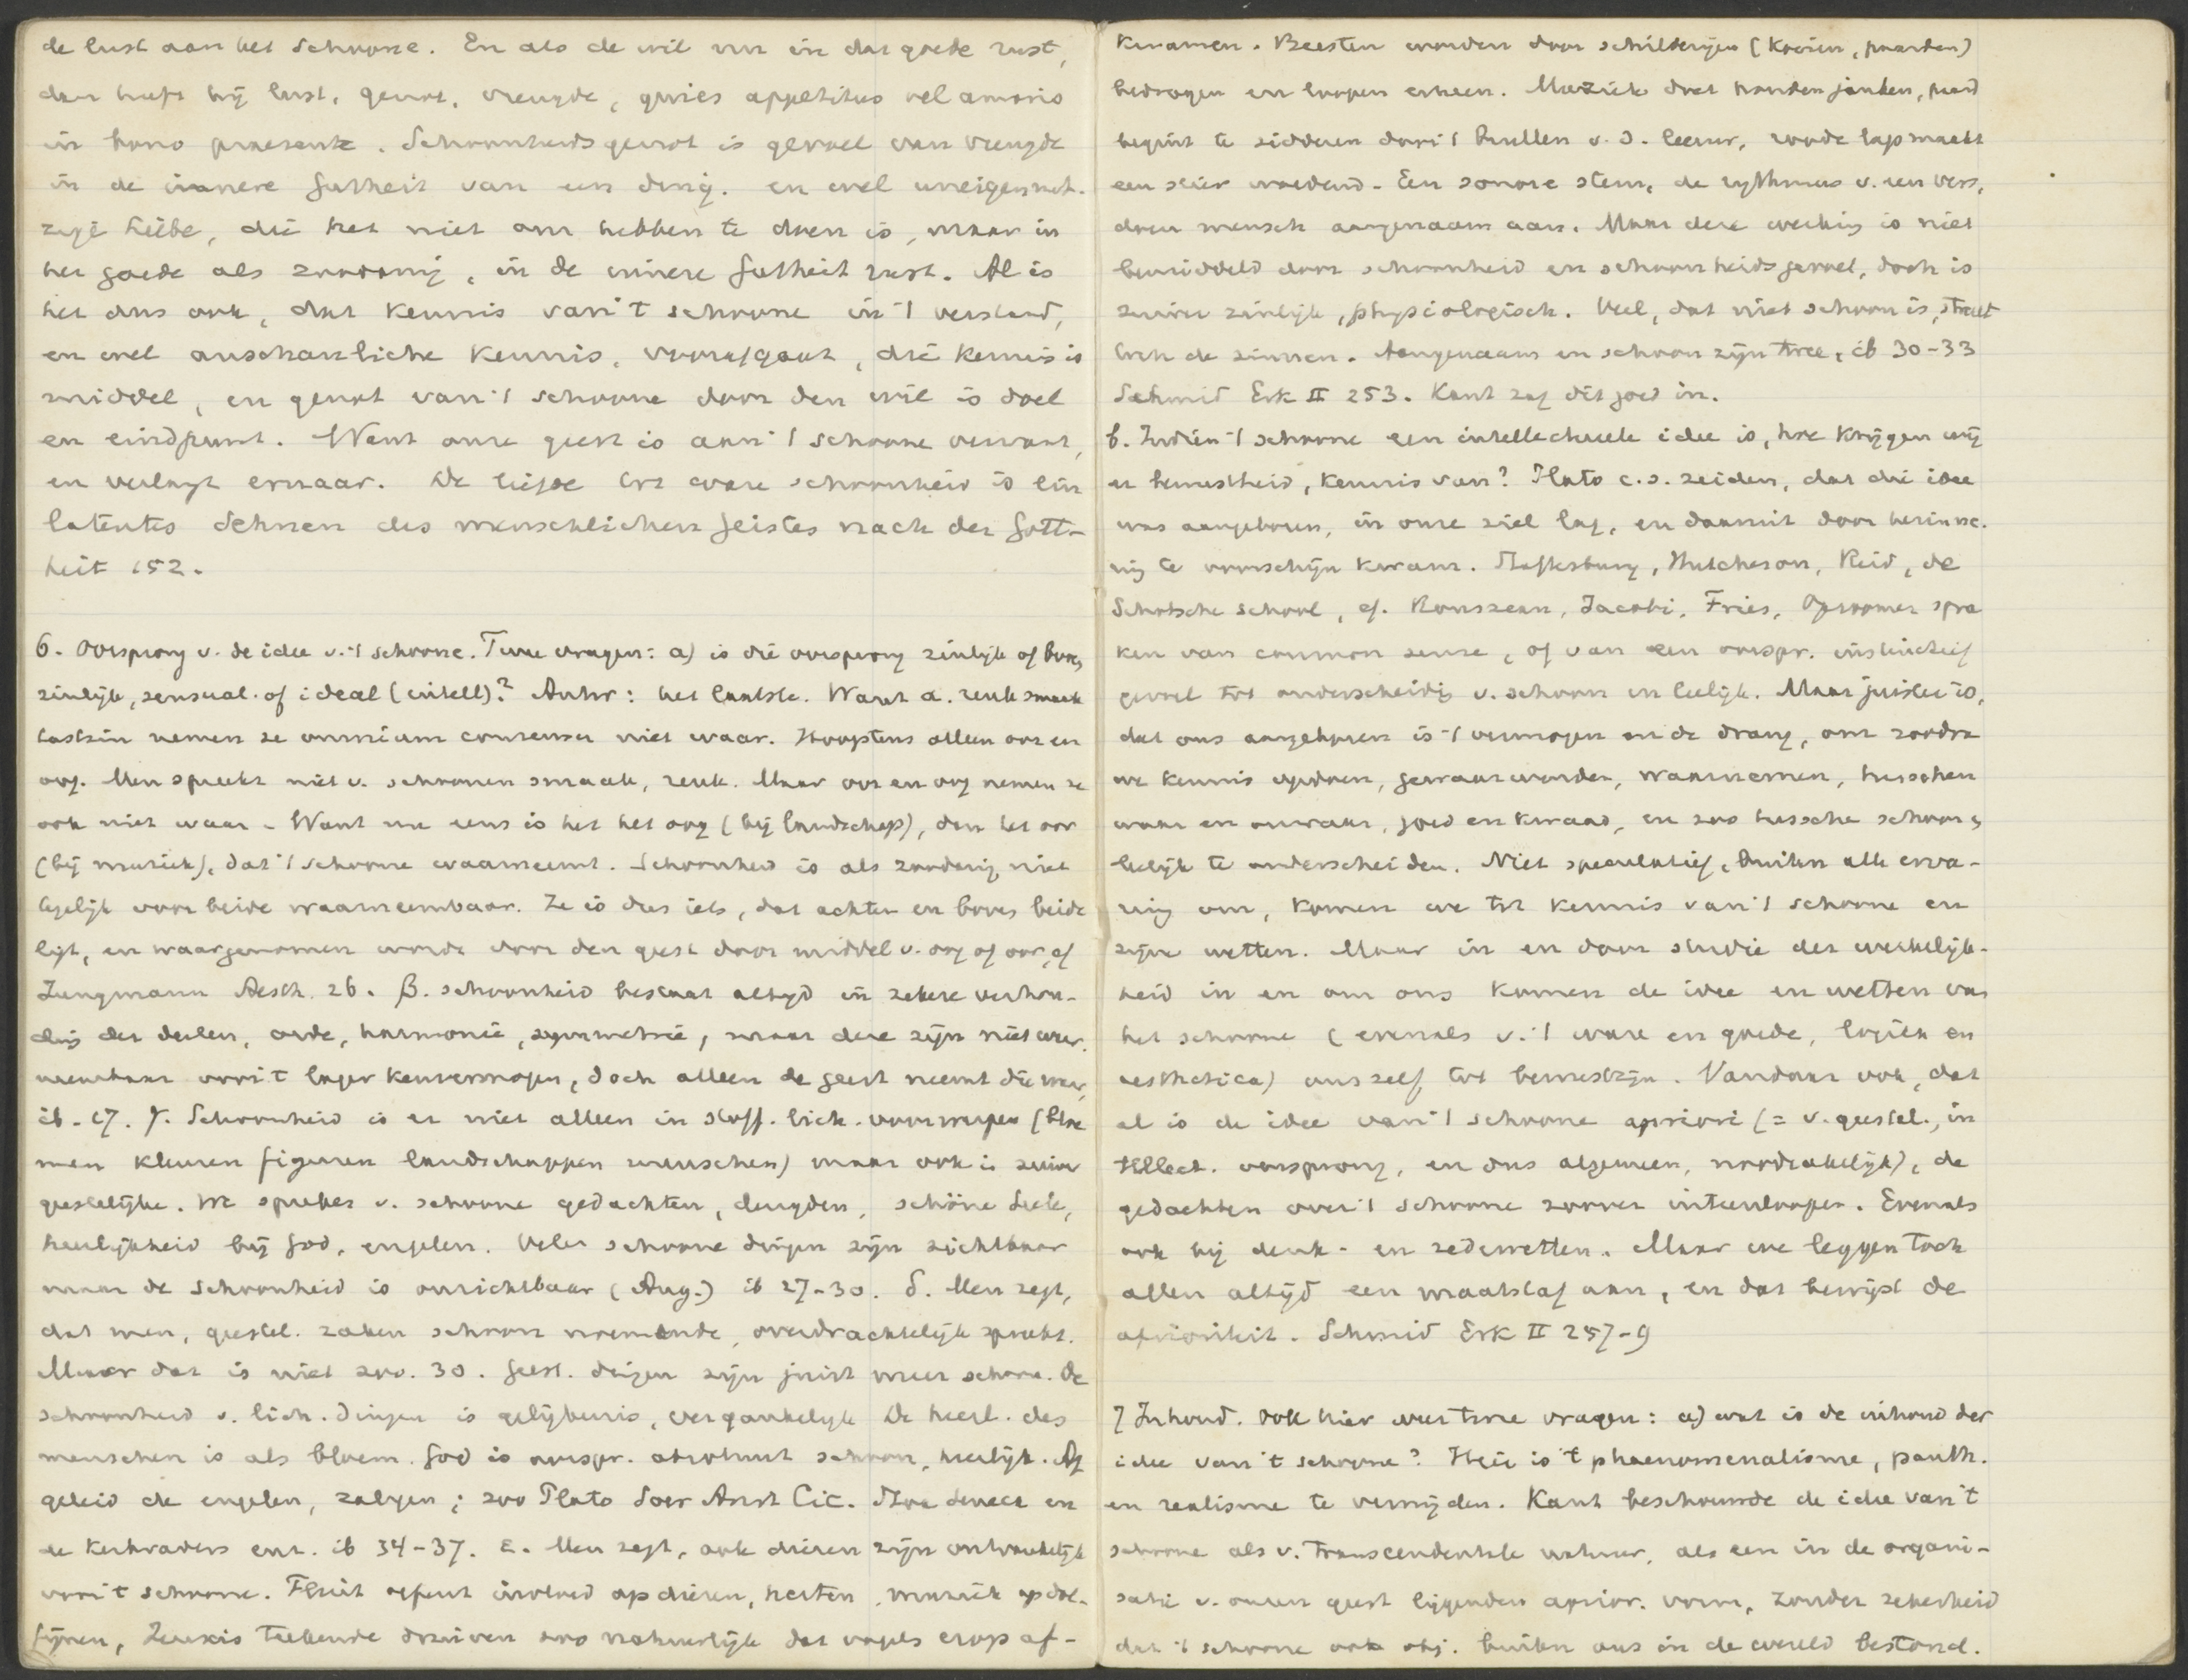 de lust aan het schoone. En als de wil nu in dat goede rust,
dan heeft hij lust, genot, vreugde, quies appetitus vel amoris
in bono praesente. Schoonheidsgenot is gevoel van vreugde
in de innere Gutheit van een ding. en wel uneigennüt-
zige Liebe, die het niet om hebben te doen is, maar in
het goede als zoodanig, in de innere Gutheit rust. Al is
het dus ook, dat kennis van 't schoone in 't verstand,
en wel anschauliche kennis, voorafgaat, die kennis is
middel, en genot van 't schoone door den wil is doel
en eindpunt. Want onze geest is aan 't schoone verwant,
en verlangt ernaar. De liefde tot ware schoonheid is ein
latentes Sehnen des menschlichen Geistes nach der Gott-
heit 152.
6. Oorsprong v. de idee v. 't schoone. Twee vragen: a) is die oorsprong zinlijk of boven
zinlijk, sensual. of ideal (intell)? Antw: het laatste. Want α. reuk smaak
tastzin nemen ze omnium consensu niet waar. Hoogstens alleen oor en
oog. Men spreekt niet v. schoonen smaak, reuk. Maar oor en oog nemen ze
ook niet waar. Want nu eens is het het oog (bij landschap), dan het oor
(bij muziek), dat 't schoone waarneemt. Schoonheid is als zoodanig niet
tegelijk voor beide waarneembaar. Ze is dus iets, dat achter en boven beide
ligt, en waargenomen wordt door den geest door middel v. oog of oor, cf
Jungmann Aesth. 26. β. schoonheid bestaat altijd in zekere verhou-
ding der deelen, orde, harmonie, symmetrie, maar deze zijn niet waar-
neembaar voor 't lager kenvermogen, doch alleen de geest neemt die waar,
ib. 27. γ. Schoonheid is er niet alleen in stoff. lich. voorwerpen (bloe
men kleuren figuren landschappen menschen) maar ook in zuiver
geestelijke. We spreken v. schoone gedachten, deugden, schöne Seele,
heerlijkheid bij God, engelen. Vele schoone dingen zijn zichtbaar
maar de schoonheid is onzichtbaar (Aug.) ib 27-30. δ. Men zegt,
dat men, geestel. zaken schoon noemende, overdrachtelijk spreekt.
Maar dat is niet zoo. 30. Geest. dingen zijn juist meer schoon. De
schoonheid v. lich. dingen is gelijkenis, vergankelijk De heerl. des
menschen is als bloem. God is oorspr. absoluut schoon, heerlijk. Af
geleid de engelen, zaligen; zoo Plato Socr Arist Cic. Stoa Seneca en
de kerkvaders enz. ib 34-37. ε. Men zegt, ook dieren zijn ontvankelijk
voor 't schoone. Fluit oefent invloed op dieren, herten, muziek op dol-
fijnen, Zeuxis teekende druiven zoo natuurlijk dat vogels erop af-
kwamen. Beesten worden door schilderijen (koeien, paarden)
bedrogen en loopen erheen. Muziek doet honden janken, paard
begint te sidderen door 't brullen v. d. leeuw, roode lap maakt
een stier woedend. Een sonore stem, de rythmus v. een vers,
doen mensch aangenaam aan. Maar deze werking is niet
bemiddeld door schoonheid en schoonheidsgevoel, doch is
zuiver zinlijk, physiologisch. Veel, dat niet schoon is, streelt
toch de zinnen. Aangenaam en schoon zijn twee, ib 30-33
Schmid Erk II 253. Kant zag dit goed in.
b. Indien 't schoone een intellectueele idee is, hoe krijgen wij
er bewustheid, kennis van? Plato c.s. zeiden, dat die idee
was aangeboren, in onze ziel lag, en daaruit door herinne-
ring te voorschijn kwam. Shaftesbury, Hutcheson, Reid, de
Schotsche school, cf. Rousseau, Jacobi, Fries, Opzoomer spra
ken van common sense, of van een oorspr. instinctief
gevoel tot onderscheiding v. schoon en leelijk. Maar juister is,
dat ons aangeboren is 't vermogen en de drang, om zoodra
we kennis opdoen, gewaarworden, waarnemen, tusschen
waar en onwaar, goed en kwaad, en zoo tussche schoon &
leelijk te onderscheiden. Niet speculatief, buiten alle erva-
ring om, komen we tot kennis van 't schoone en
zijne wetten. Maar in en door studie der werkelijk-
heid in en om ons komen de idee en wetten van
het schoone (evenals v. 't ware en goede, logica en
aesthetica) ons zelf tot bewustzijn. Vandaar ook, dat
al is de idee van 't schoone apriori (= v. geestel., in
tellect. oorsprong, en dus algemeen, noodzakelijk), de
gedachten over 't schoone zoover uiteenloopen. Evenals
ook bij denk- en zedewetten. Maar we leggen toch
allen altijd een maatstaf aan, en dat bewijst de
aprioriteit. Schmid Erk II 257-9
7 Inhoud. Ook hier weer twee vragen: a) wat is de inhoud der
idee van 't schoone? Hier is 't phaenomenalisme, panth.
en realisme te vermijden. Kant beschouwde de idee van 't
schoone als v. transcendentale natuur, als een in de organi-
satie v. onzen geest liggenden aprior. vorm, zonder zekerheid
dat 't schoone ook obj. buiten ons in de wereld bestond.